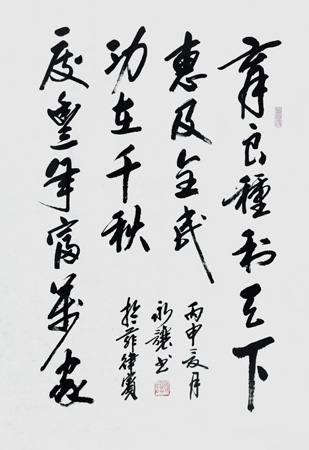 育良種利天下
惠及全民
功在千秋
慶豐年富萬家
丙申夏月
永書
於菲律賓